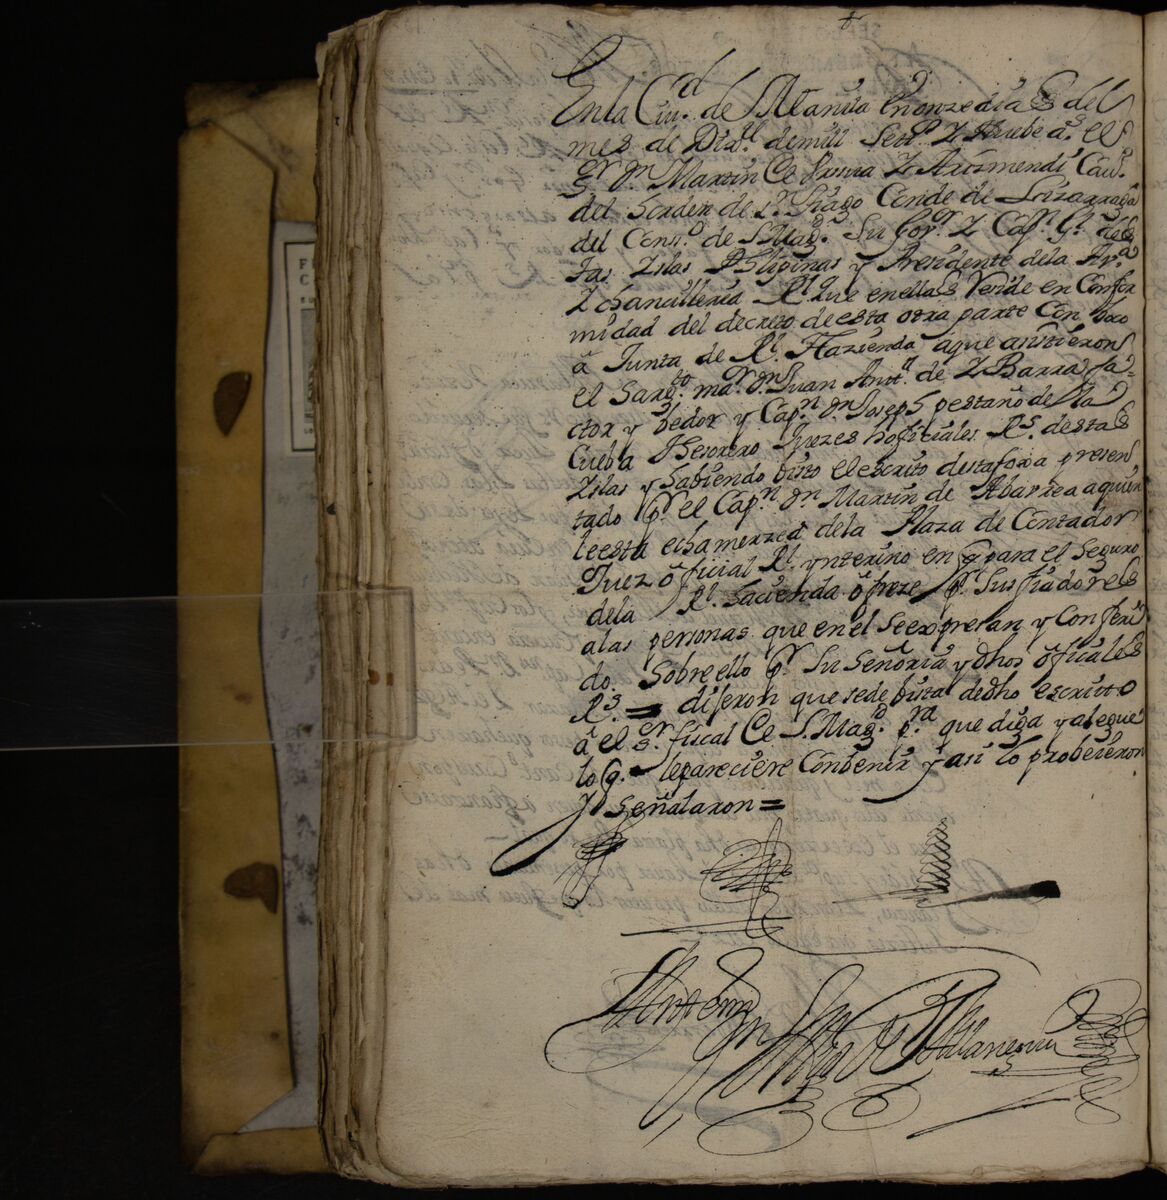 En la Ciud. de Manila en onze dias del
mes de Dizl. de mill Sett.s y Nuebe a.s el
Sr. Dn. Martin de Vrsua y Arismendi Cau.o
del horden de S.tiago Conde de Lizarraga
del Cons.o de S. Mag.d Su Gor. y Cap.n Gl. de es
tas Yslas Philipinas y Presidente de la Au.a
y chancilleria Rl. que en ellas reside en Confor
midad del decreto de esta otra parte Con boco
â Junta de Rl. Hazienda â que asistieron
el Sarg.to ma.r Dn. Juan Antt.o de Y Barra fa-
ctor y beedor y Cap.n Dn. Joseph pestaño de
Cueba Thesorero Juezes hoficiales R.s destas
Yslas y habiendo bisto el escrito destafoxa presen
tado pr. el Cap.n Dn. Martin de Abarrea a quien
le esta echa merzed de la Plaza de Contador
Juez ôficial Rl. ynterino en q. para el seguro
de la Rl. hacienda ôfreze pr. Sus fiadores
a las personas que en el se expresan y Conferi
do. Sobre ello pr. Su Señoria y dhos ôficiales
R.s = dijeron que se de bista de dho escritto
â el sr. fiscal de S. Mag.d p.ra que diga y alegue
lo q. le pareciere Conbenir y asi lo probeieron
y Señalaron =
Ante mi